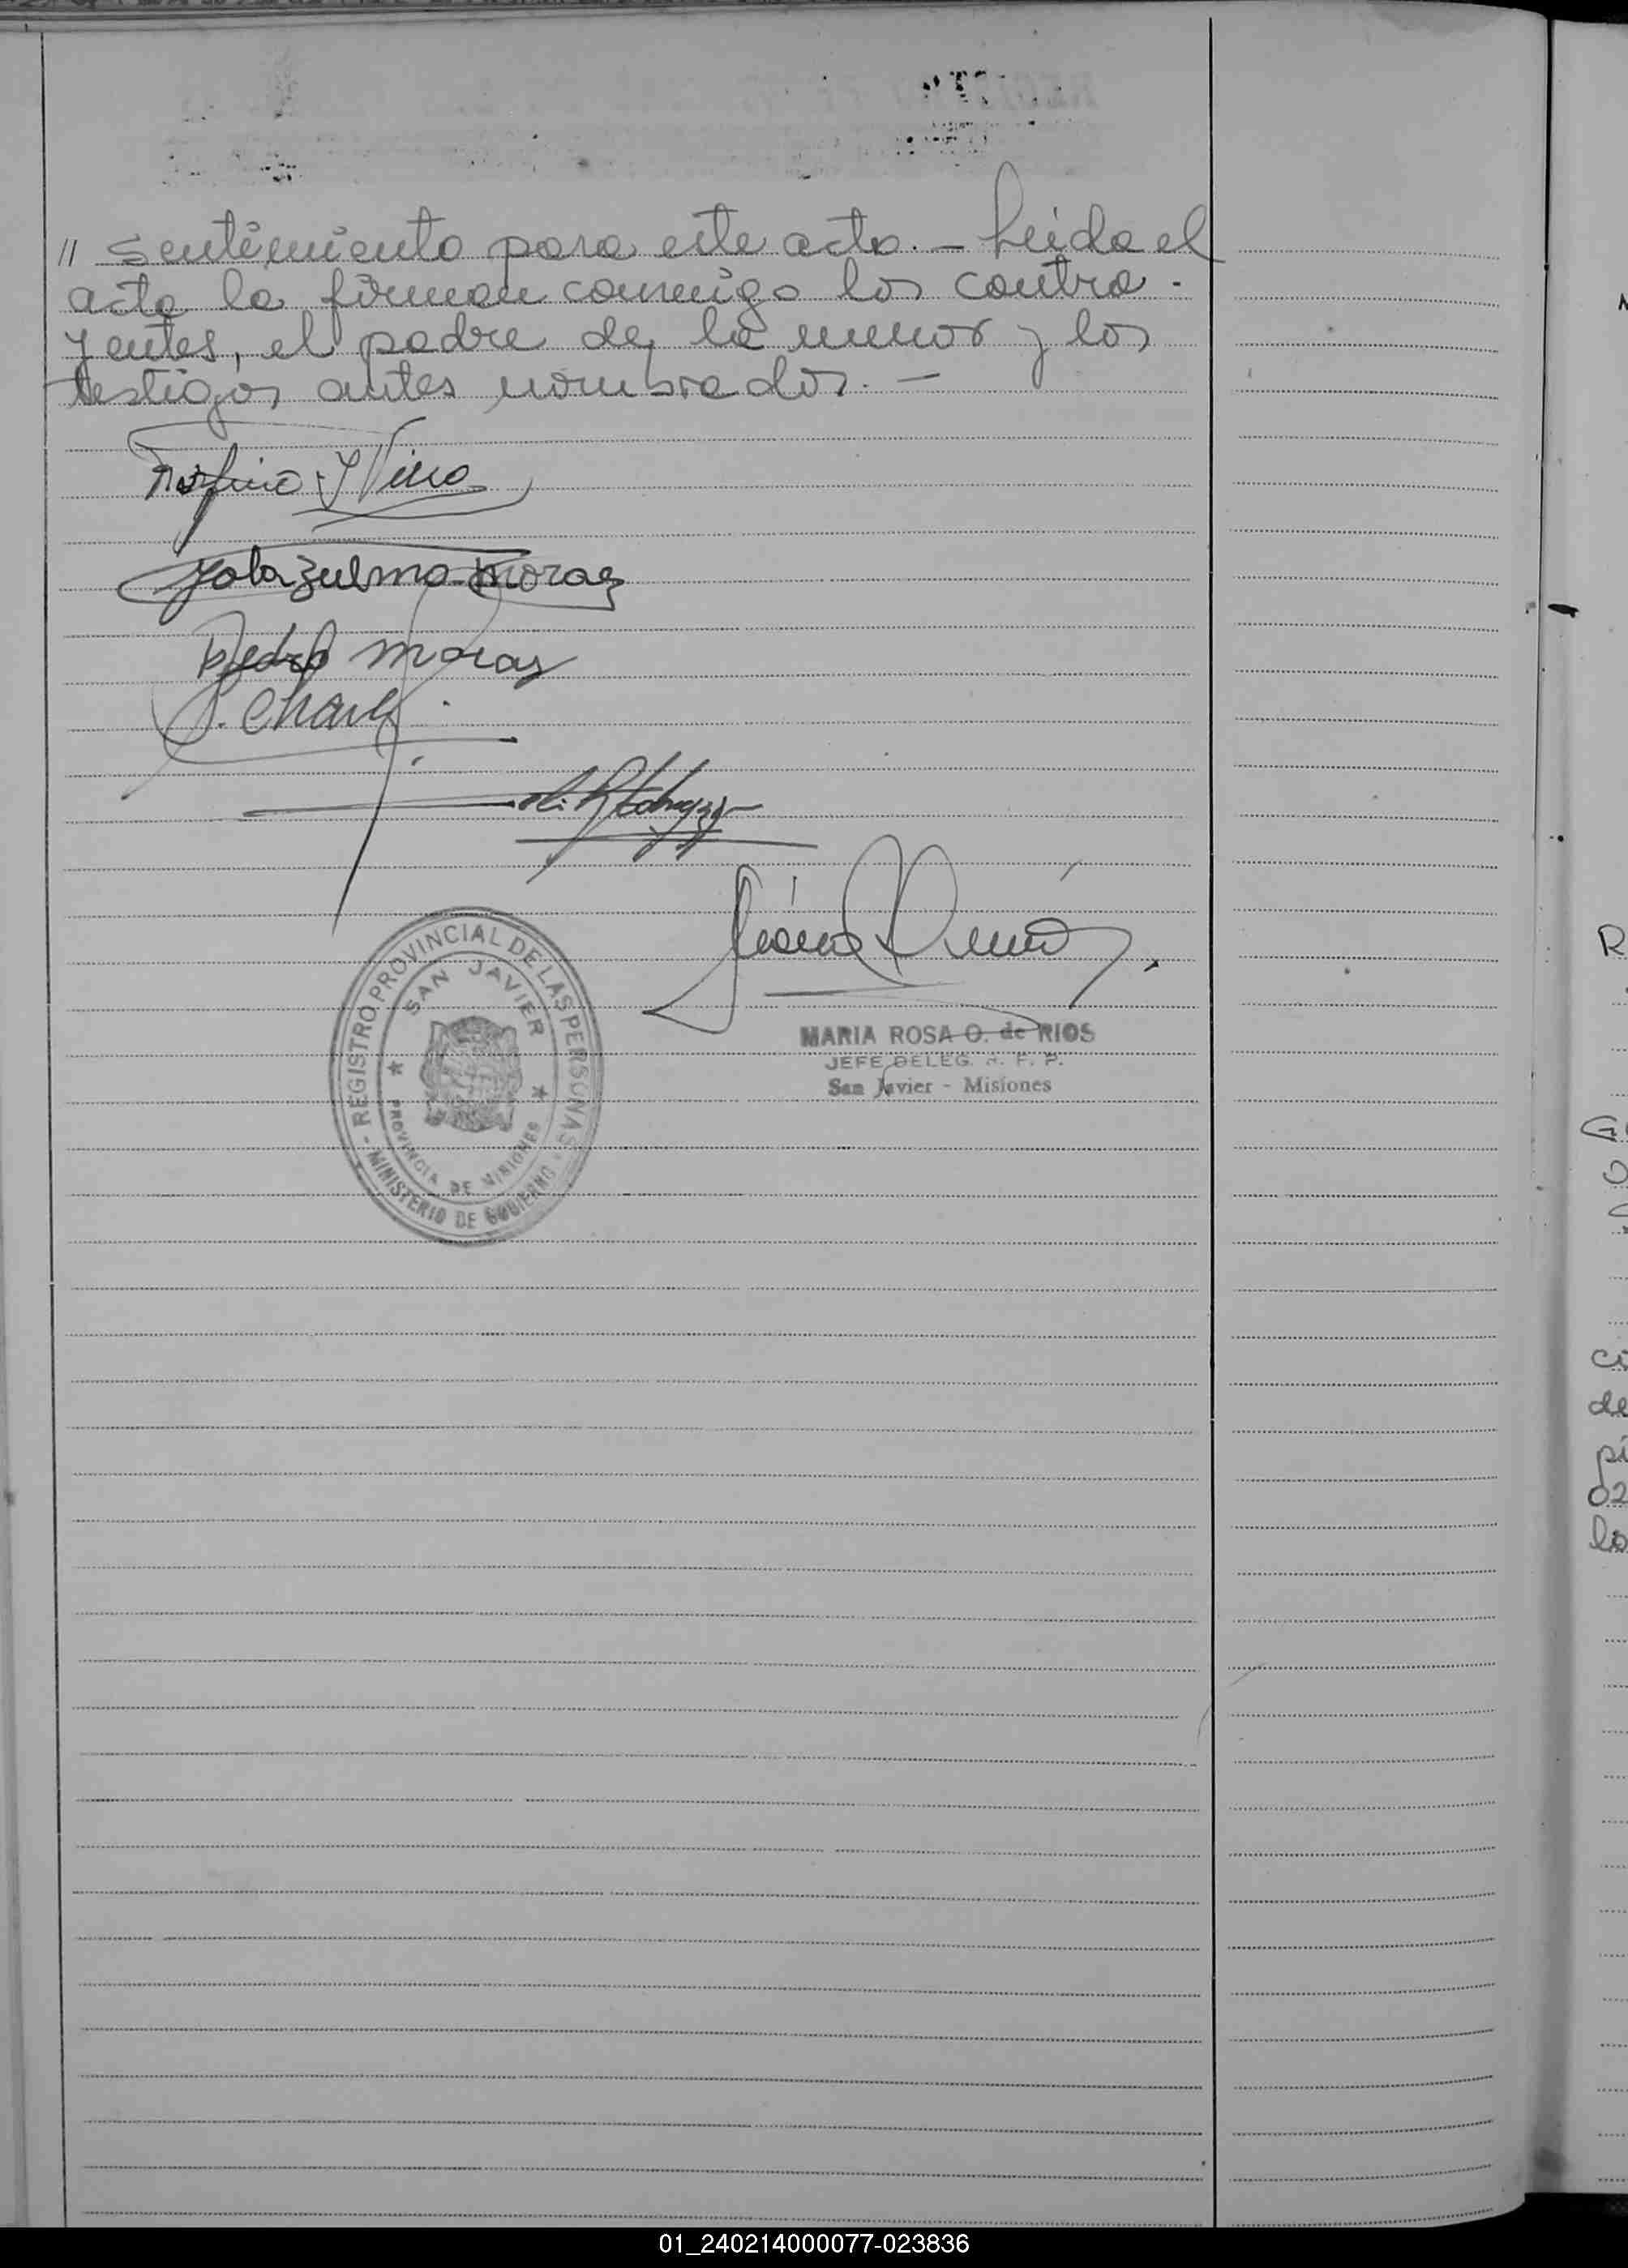 // sentimiento para este acto. - Leida el
acta la firman conmigo los contra-
yentes, el padre de la menor y los
testigos antes nombrados. -
Yola Zulma Moraz
Pedro Moraz
REGISTRO PROVINCIAL DE LAS PERSONAS
SAN JAVIER
PROVINCIA DE MISIONES
- MINISTERIO DE GOBIERNO -
MARIA ROSA O. de RIOS
JEFE DELEG. R. P. P.
San Javier - Misiones
R
G
ci
de
pi
02
lo
01_240214000077-023836